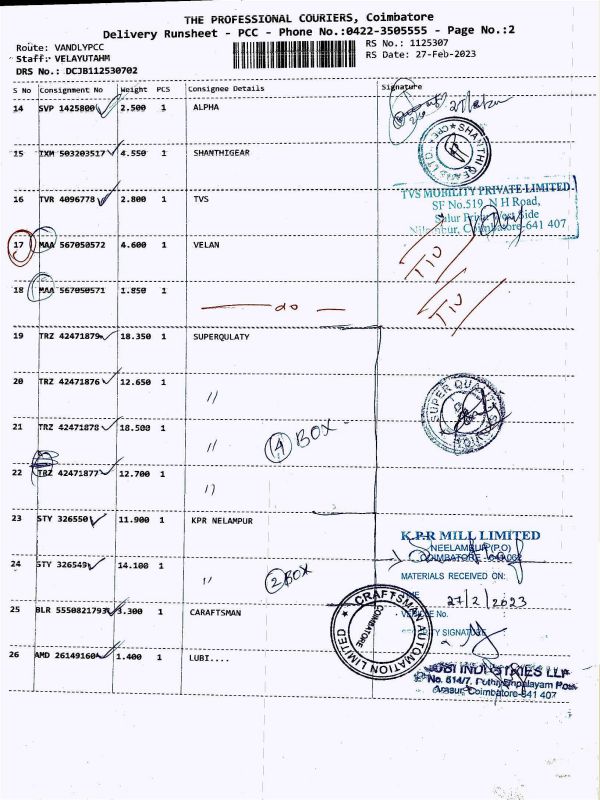 THE PROFESSIONAL COURIERS, Coimbatore
Delivery Runsheet - PCC - Phone No.:0422-3505555 - Page No.:2
Route: VANDLYPCC
RS No.: 1125307
Staff: VELAYUTAHM
RS Date: 27-Feb-2023
DRS No.: DCJB112530702
S No Consignment No Weight PCS Consignee Details Signature
14 SVP 1425800 2.500 1 ALPHA
15 IXM 503203517 4.550 1 SHANTHIGEAR
SHANTHI GEARS LTD. CPC
16 TVR 4096778 2.800 1 TVS
TVS MOBILITY PRIVATE LIMITED
SF No.519, N H Road,
Sulur Privu West Side
Nilambur, Coimbatore-641 407
17 MAA 567050572 4.600 1 VELAN
TIU
18 MAA 567050571 1.850 1
do
TIU
19 TRZ 42471879 18.350 1 SUPERQULATY
20 TRZ 42471876 12.650 1 "
SUPER QUALITY
21 TRZ 42471878 18.500 1 "
4 BOX
22 TRZ 42471877 12.700 1 "
23 STY 326550 11.900 1 KPR NELAMPUR
K.P.R MILL LIMITED
NEELAMBUR (P.O)
COIMBATORE
24 STY 326549 14.100 1 "
2 BOX
MATERIALS RECEIVED ON:
27/2/2023
25 BLR 5550821793 3.300 1 CARAFTSMAN
CRAFTSMAN AUTOMATION LIMITED
COIMBATORE
SIGNATURE
26 AMD 26149160 1.400 1 LUBI....
LUBI INDUSTRIES LLP
No. 614/7,
Arasur, Coimbatore-641 407